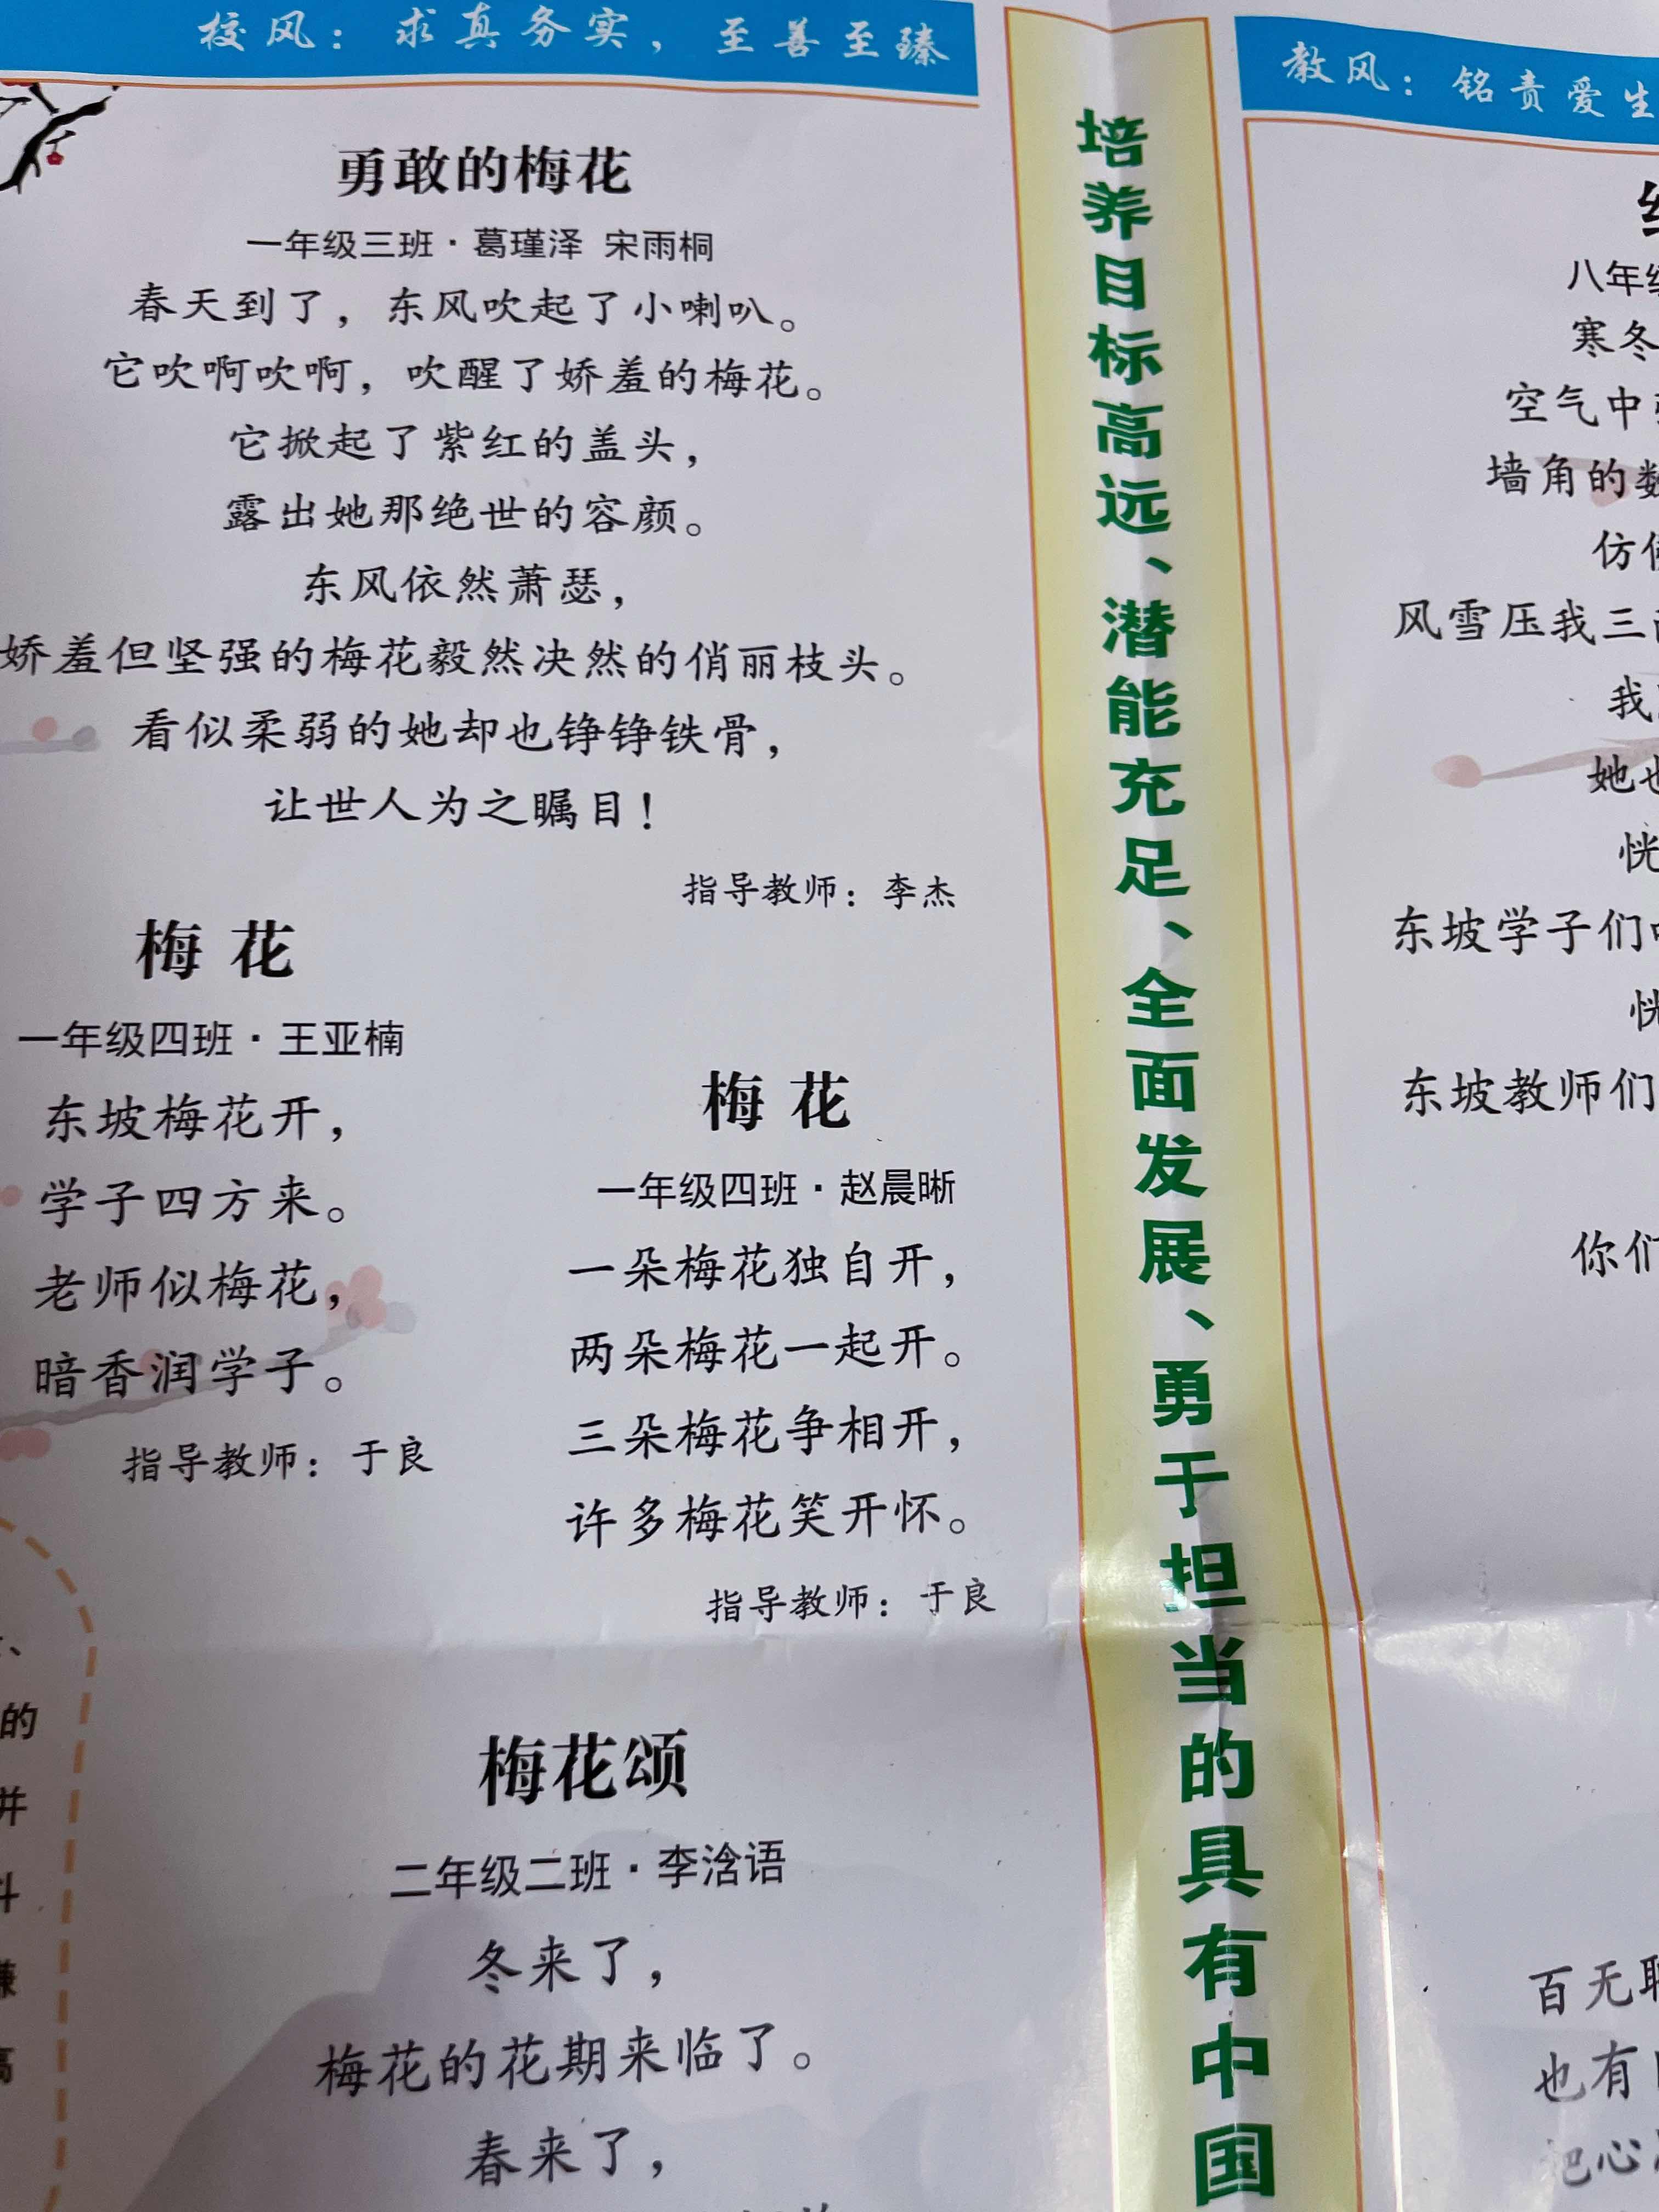 校风：求真务实，至善至臻
勇敢的梅花
一年级三班·葛瑾泽 宋雨桐
春天到了，东风吹起了小喇叭。
它吹啊吹啊，吹醒了娇羞的梅花。
它掀起了紫红的盖头，
露出她那绝世的容颜。
东风依然萧瑟，
娇羞但坚强的梅花毅然决然的俏丽枝头。
看似柔弱的她却也铮铮铁骨，
让世人为之瞩目！
指导教师：李杰
梅花
一年级四班·王亚楠
东坡梅花开，
学子四方来。
老师似梅花，
暗香润学子。
指导教师：于良
梅花
一年级四班·赵晨晰
一朵梅花独自开，
两朵梅花一起开。
三朵梅花争相开，
许多梅花笑开怀。
指导教师：于良
的
并
梅花颂
二年级二班·李浛语
冬来了，
梅花的花期来临了。
春来了，
培养目标高远、潜能充足、全面发展、勇于担当的具有中国
教风：铭责爱生
八年级
寒冬
空气中
墙角的数
仿佛
风雪压我三
我
她也
恍
东坡学子们
恍
东坡教师们
你们
百无聊
也有
把心